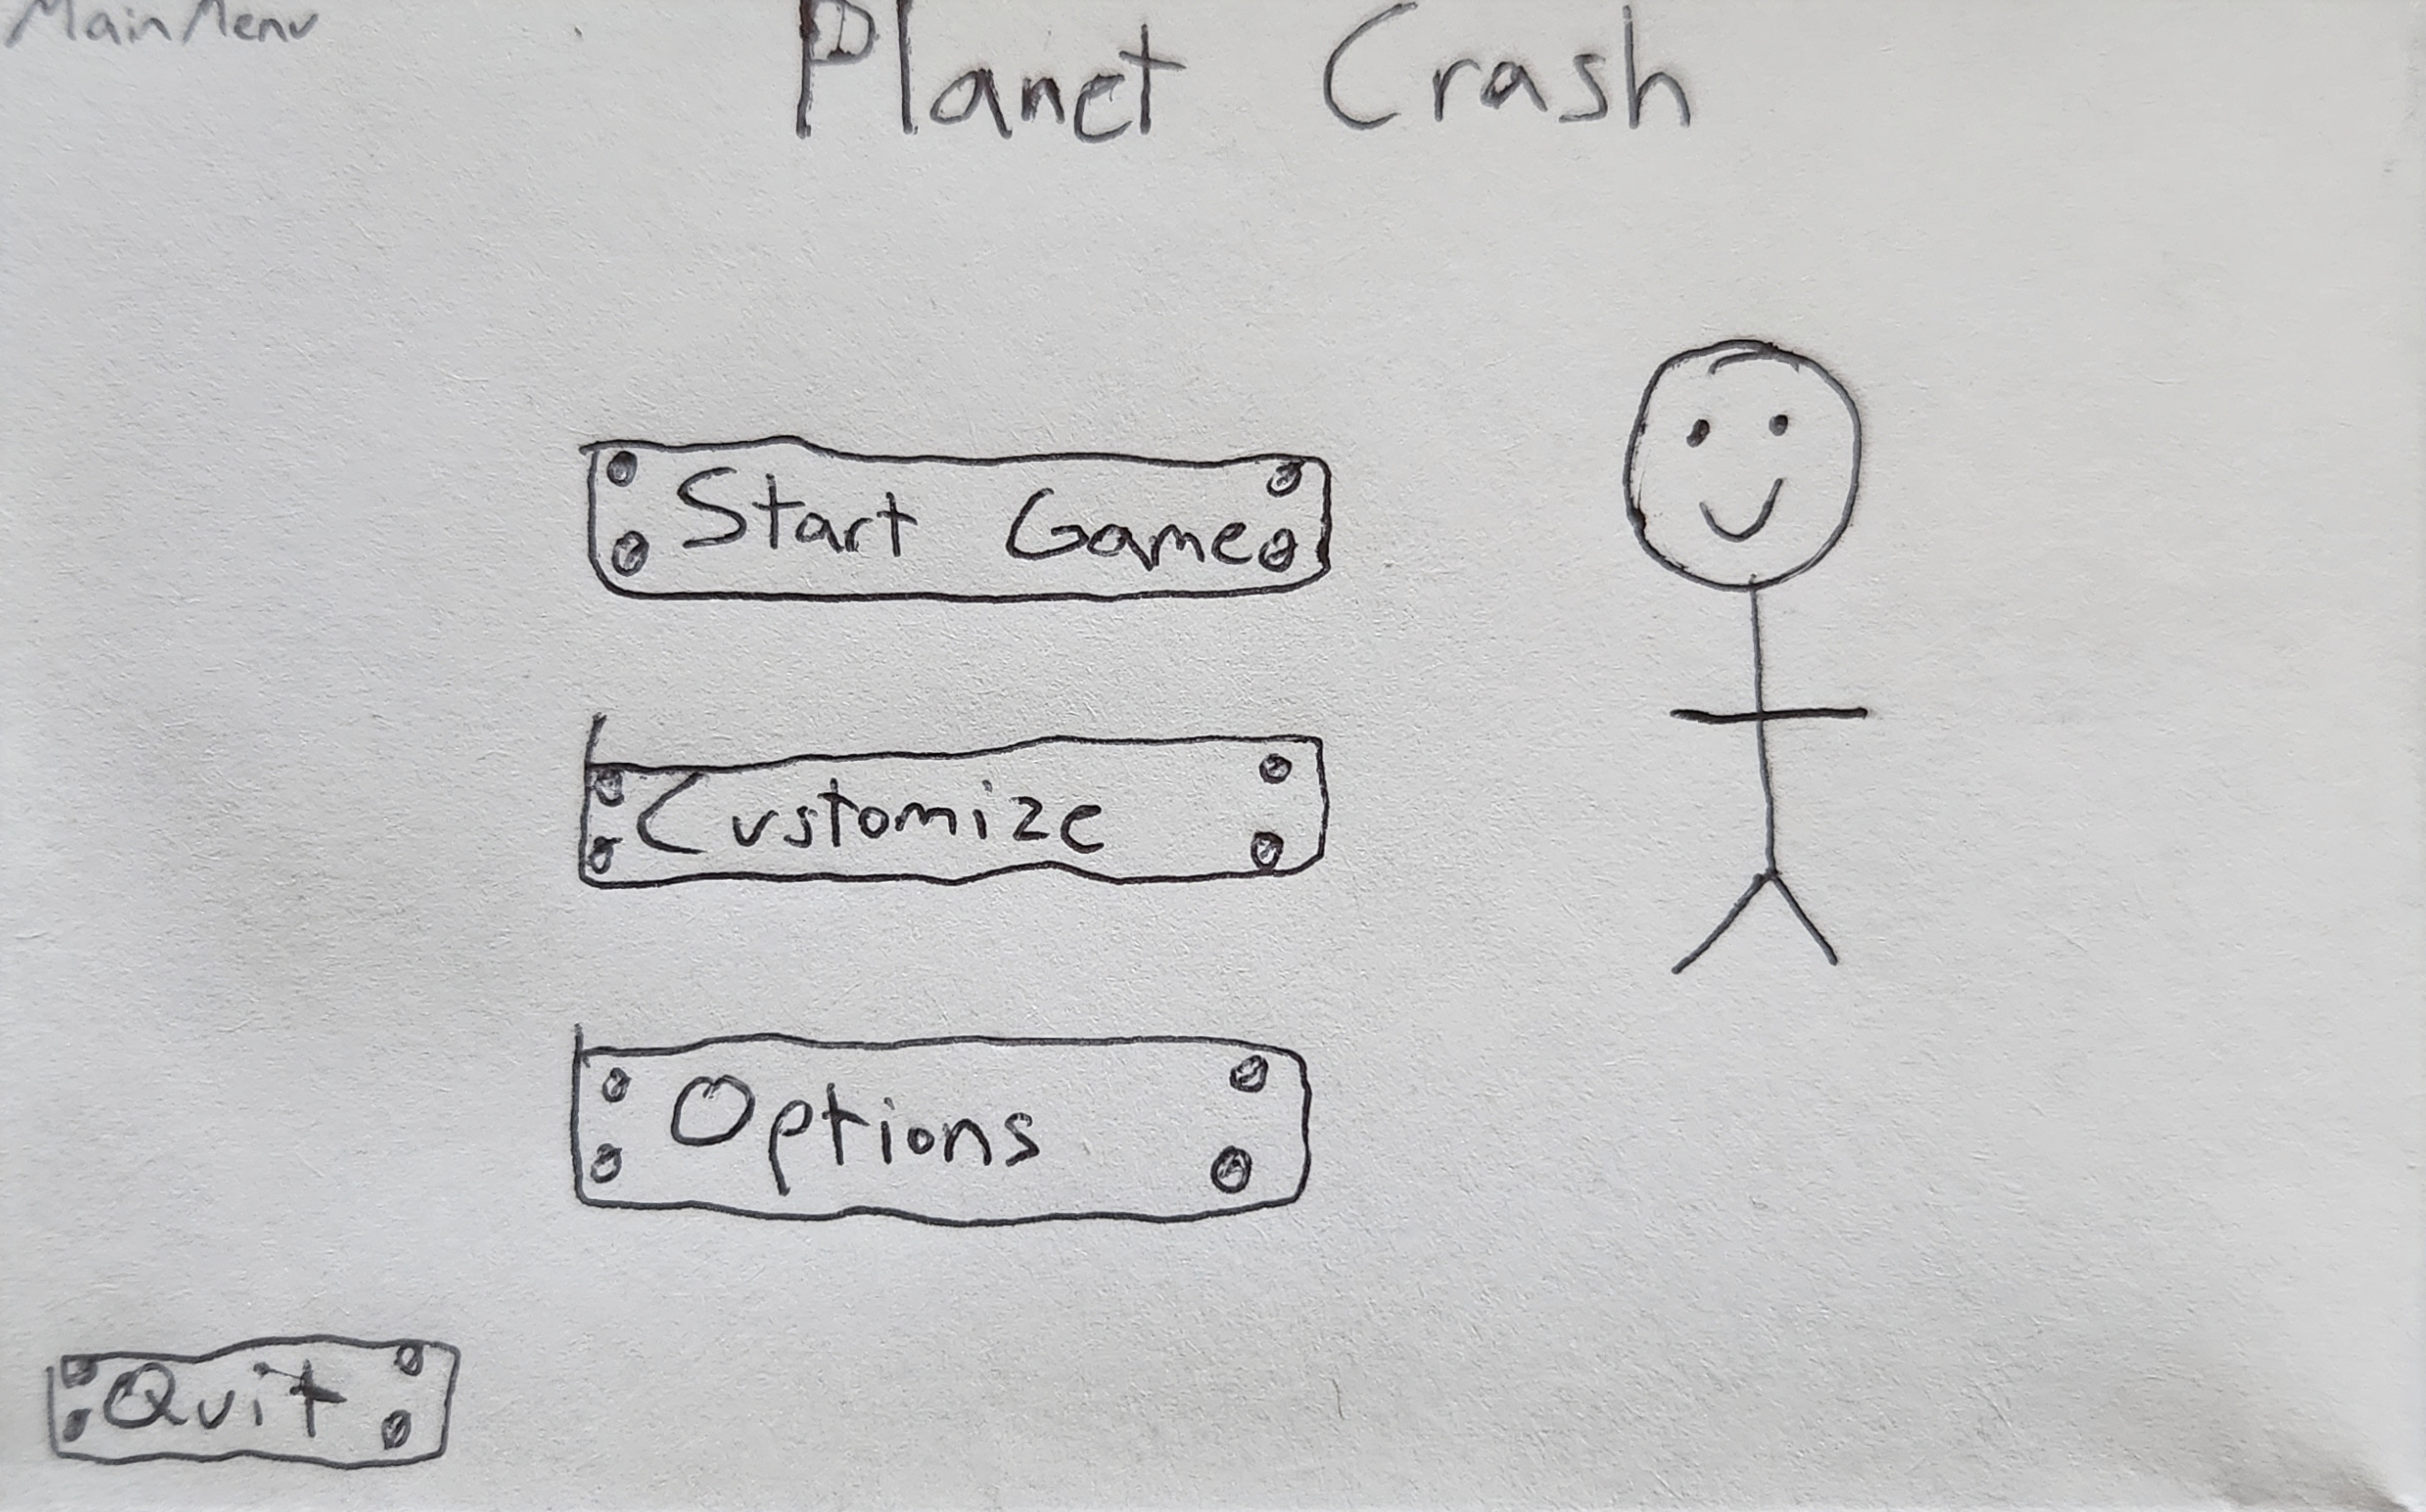 Main Menu
Planet Crash
Start Game
Customize
Options
Quit